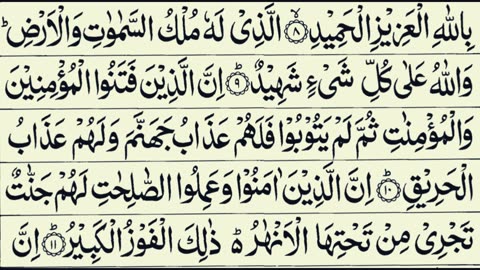 بِاللّٰهِ الْعَزِيْزِ الْحَمِيْدِ ۙ﴿۸﴾ الَّذِيْ لَهٗ مُلْكُ السَّمٰوٰتِ وَالْاَرْضِ ؕ
وَاللّٰهُ عَلٰى كُلِّ شَيْءٍ شَهِيْدٌ ؕ﴿۹﴾ اِنَّ الَّذِيْنَ فَتَنُوا الْمُؤْمِنِيْنَ
وَالْمُؤْمِنٰتِ ثُمَّ لَمْ يَتُوْبُوْا فَلَهُمْ عَذَابُ جَهَنَّمَ وَلَهُمْ عَذَابُ
الْحَرِيْقِ ؕ﴿۱۰﴾ اِنَّ الَّذِيْنَ اٰمَنُوْا وَعَمِلُوا الصّٰلِحٰتِ لَهُمْ جَنّٰتٌ
تَجْرِيْ مِنْ تَحْتِهَا الْاَنْهٰرُ ۬ؕ ذٰلِكَ الْفَوْزُ الْكَبِيْرُ ؕ﴿۱۱﴾ اِنَّ